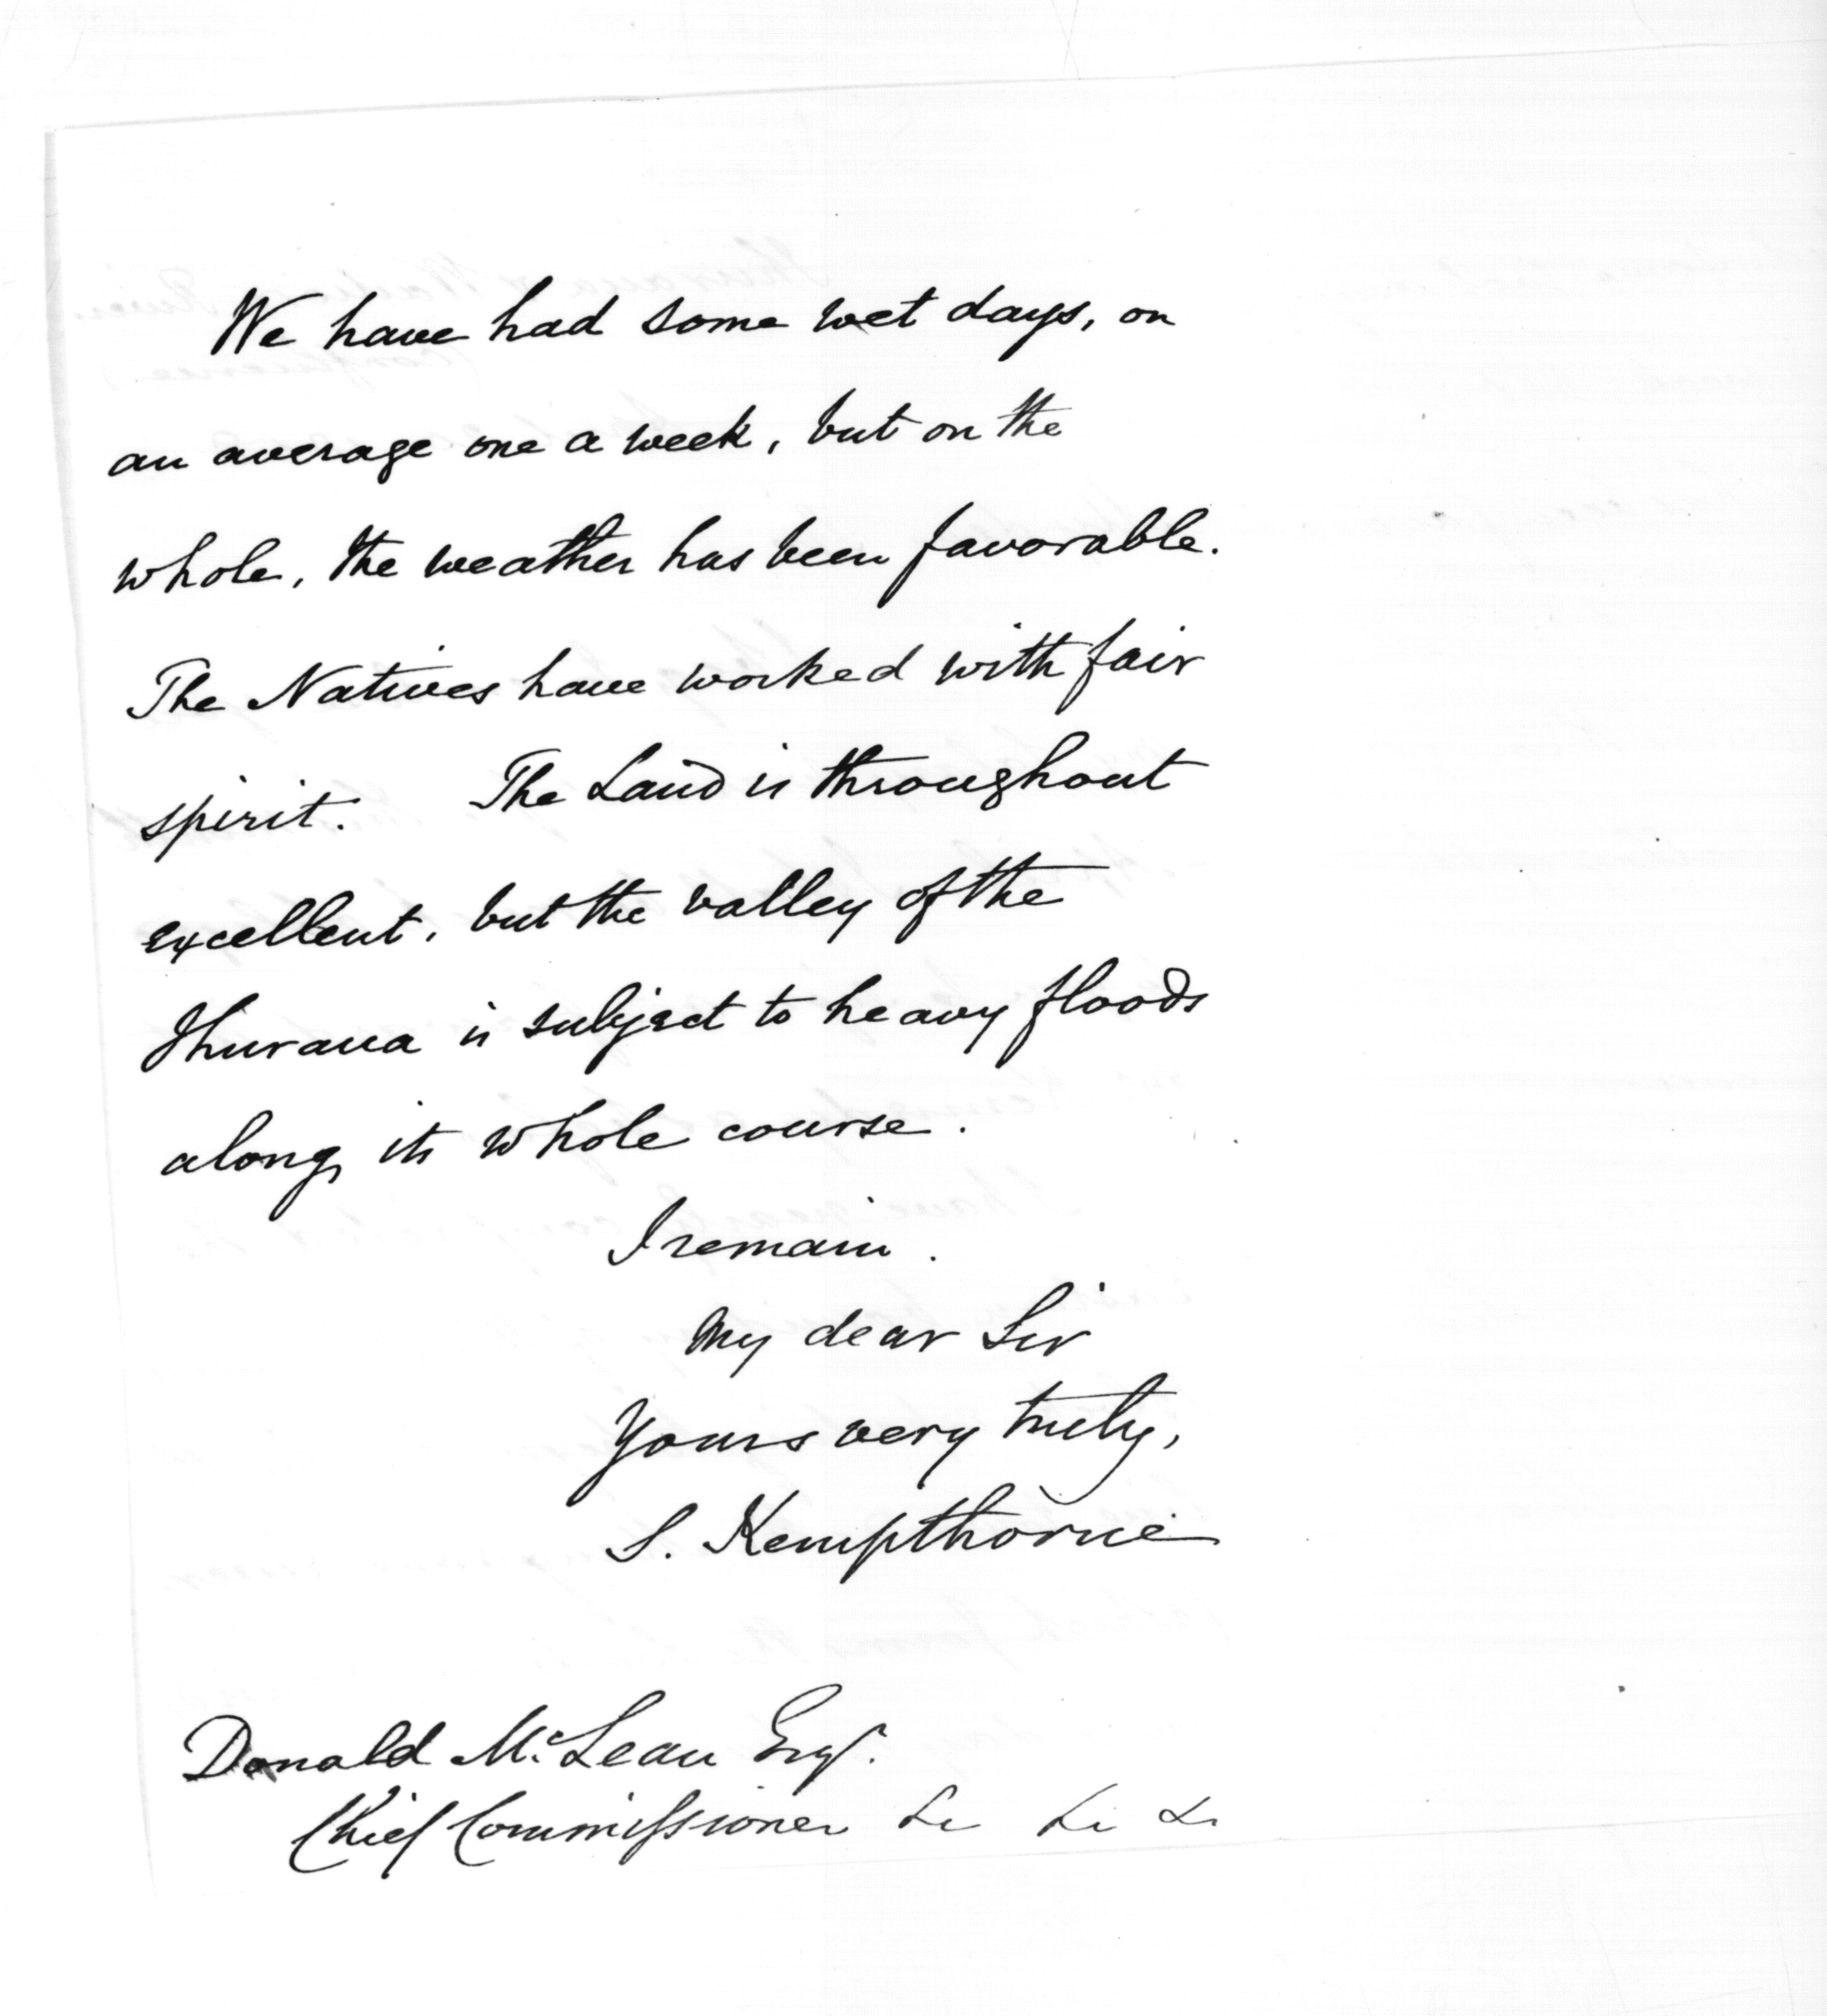 We have had some wet days, on
an average one a week, but on the
whole, the weather has been favorable.
The Natives have worked with fair
spirit. The Land is throughout
excellent, but the valley of the
Ihuraua is subject to heavy floods
along its whole course.
I remain.
My dear Sir
Yours very truly,
S. Kempthorne
Donald McLean Esq.
Chief Commissioner &c &c &c